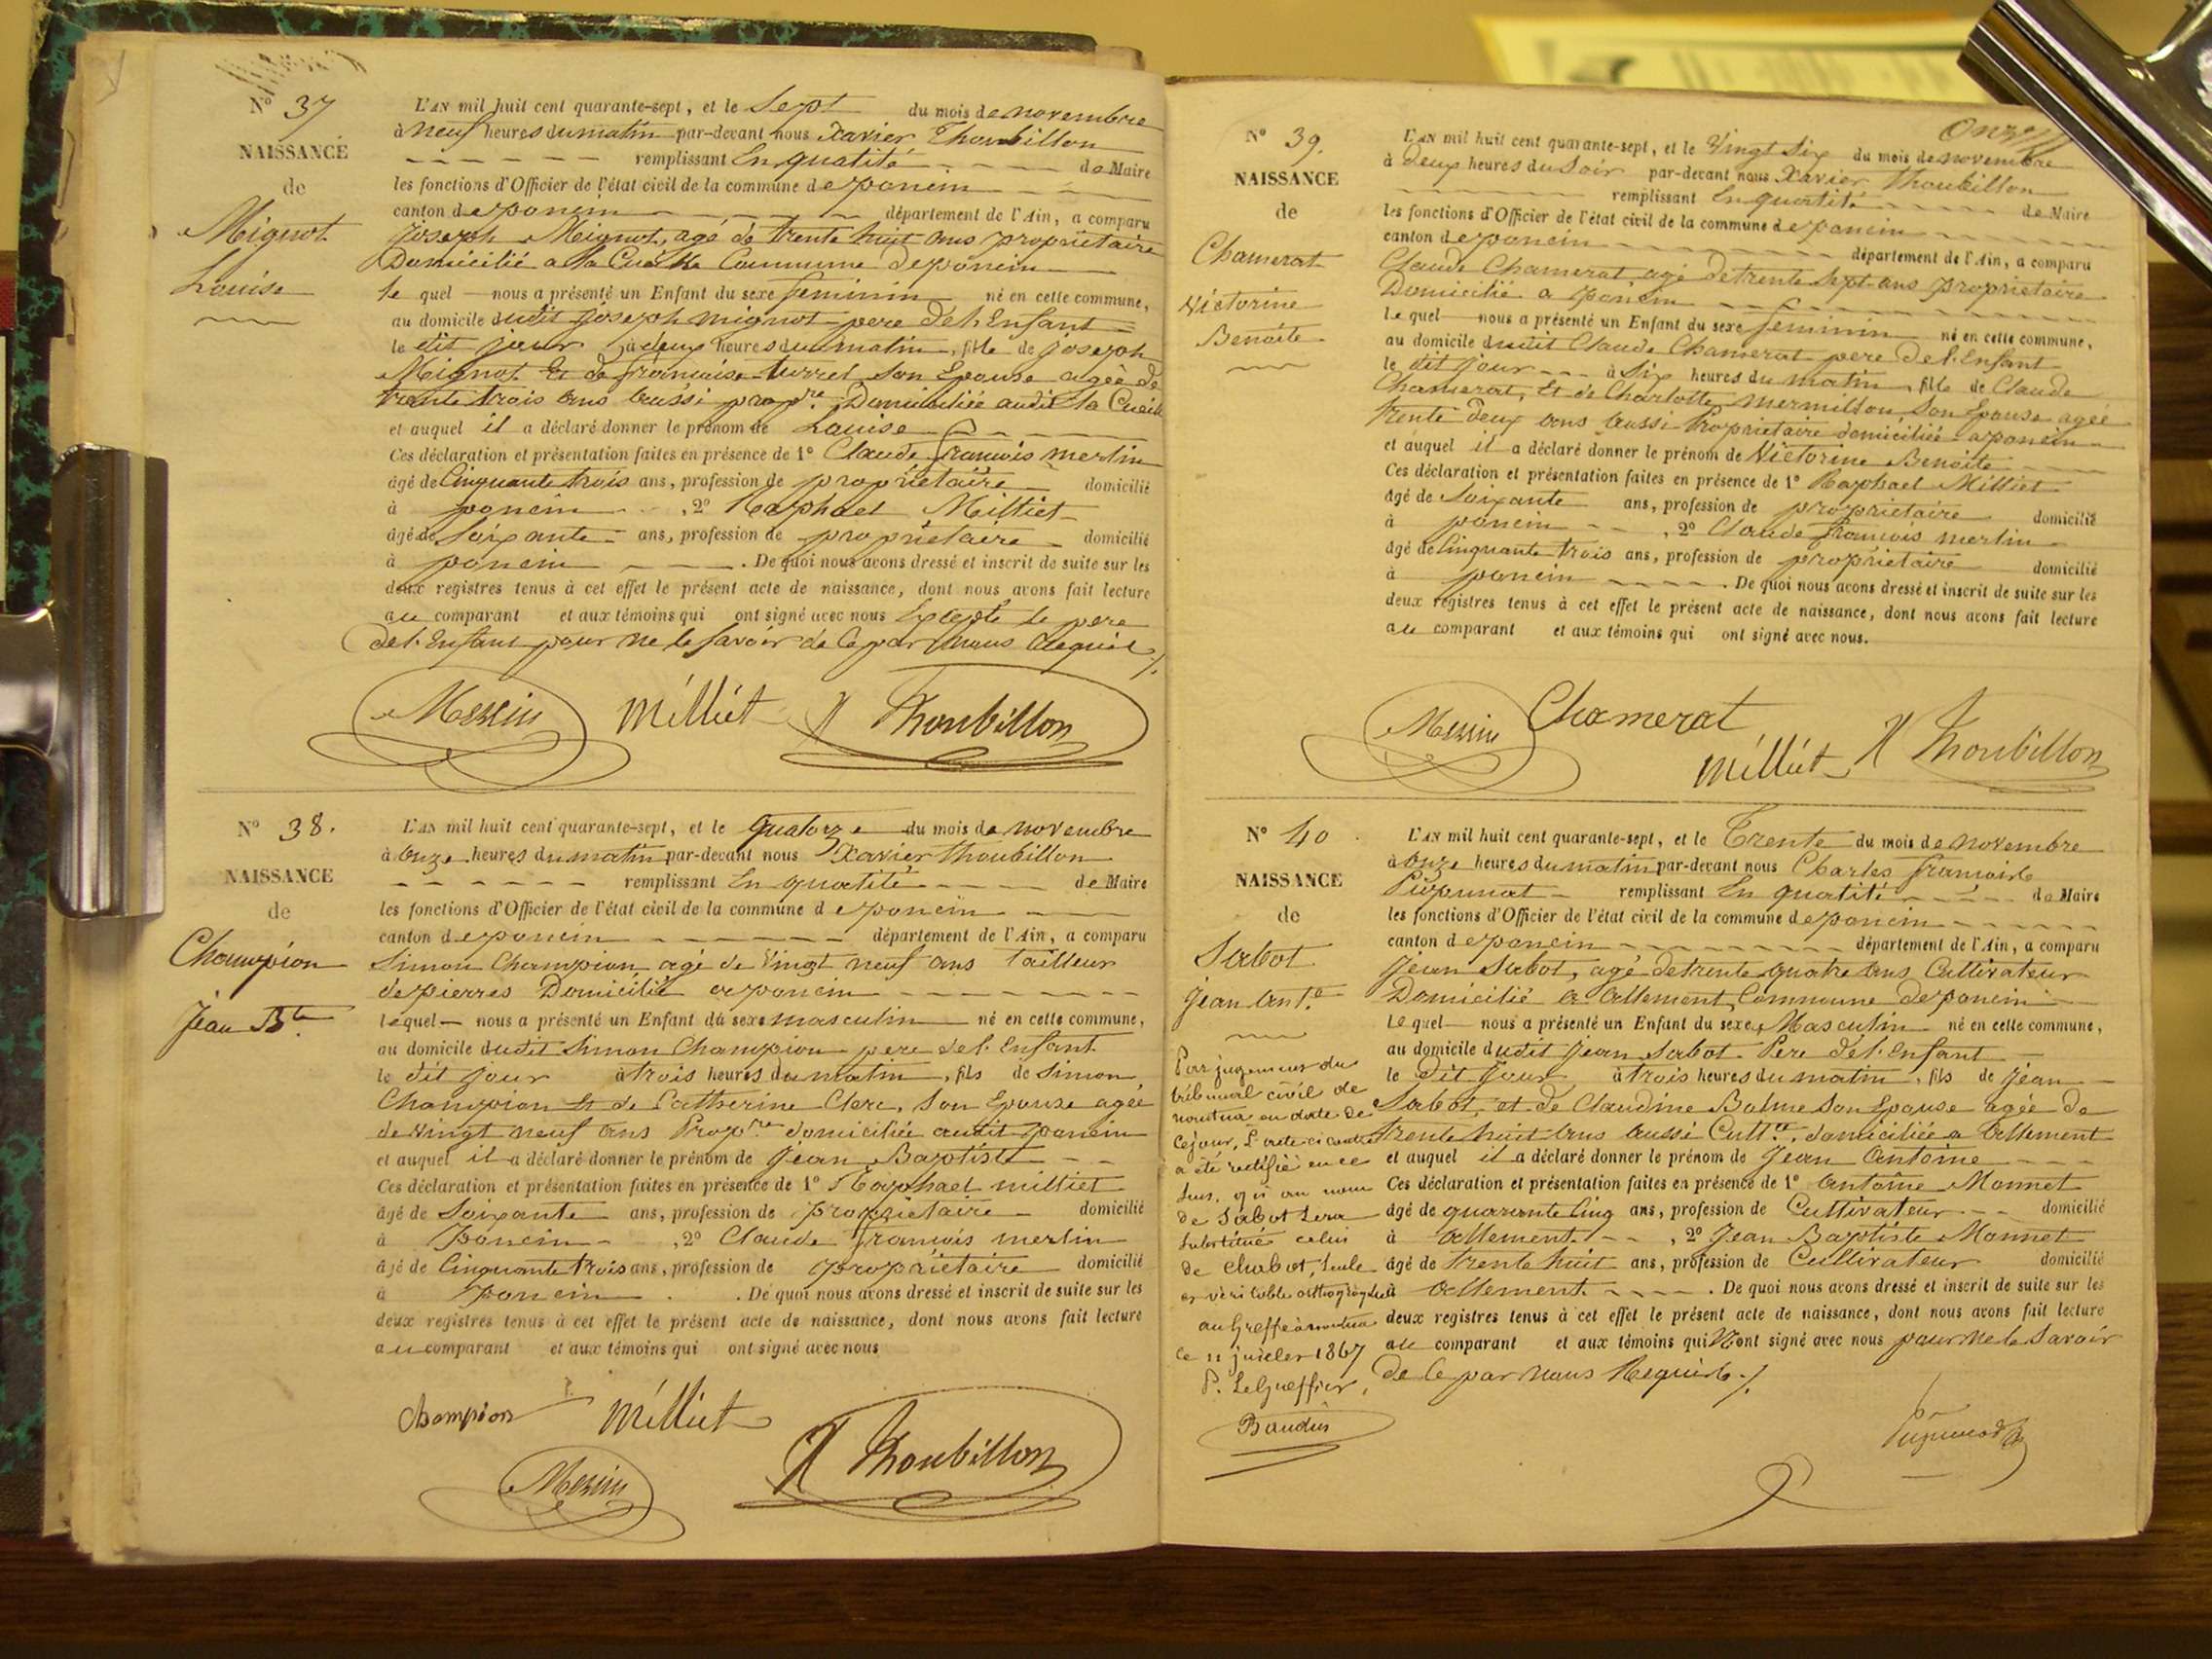 Nº 37
NAISSANCE
de
Mignot
Louise
L'AN mil huit cent quarante-sept, et le Sept du mois de novembre
à neuf heures du matin par-devant nous Xavier Thoubillon
remplissant En qualité de Maire
les fonctions d'Officier de l'état civil de la commune de poncin
canton de poncin département de l'Ain, a comparu
joseph Mignot, agé de trente huit ans propriétaire
Domicilié a la Cueille Commune de poncin
le quel nous a présenté un Enfant du sexe feminin né en cette commune,
au domicile dudit joseph mignot pere de l'Enfant
le dit jour à deux heures du matin, fille de joseph
Mignot Et de françoise turrel son Epouse agée de
trente trois ans aussi prop.re Domiciliée audit la Cueille
et auquel il a déclaré donner le prénom de Louise
Ces déclaration et présentation faites en présence de 1º Claude françois merlin
âgé de Cinquante trois ans, profession de propriétaire domicilié
à poncin, 2º Raphael Milliet
âgé de Soixante ans, profession de propriétaire domicilié
à poncin. De quoi nous avons dressé et inscrit de suite sur les
deux registres tenus à cet effet le présent acte de naissance, dont nous avons fait lecture
au comparant et aux témoins qui ont signé avec nous Excepté le pere
de l'Enfant pour ne le savoir de Ce par nous Requis
Merlin Milliet X Thoubillon
Nº 38.
NAISSANCE
de
Champion
Jean Bte
L'AN mil huit cent quarante-sept, et le quatorze du mois de novembre
à onze heures du matin par-devant nous Xavier Thoubillon
remplissant En qualité de Maire
les fonctions d'Officier de l'état civil de la commune de poncin
canton de poncin département de l'Ain, a comparu
Simon Champion agé de Vingt neuf ans tailleur
de pierres Domicilié a poncin
le quel nous a présenté un Enfant du sexe masculin né en cette commune,
au domicile dudit Simon Champion pere de l'Enfant
le dit jour à trois heures du matin, fils de Simon
Champion Et de Catherine Clerc, son Epouse agée
de Vingt neuf ans Prop.re domiciliée audit poncin
et auquel il a déclaré donner le prénom de Jean Baptiste
Ces déclaration et présentation faites en présence de 1º Raphael milliet
âgé de Soixante ans, profession de propriétaire domicilié
à Poncin, 2º Claude françois merlin
âgé de Cinquante trois ans, profession de propriétaire domicilié
à poncin. De quoi nous avons dressé et inscrit de suite sur les
deux registres tenus à cet effet le présent acte de naissance, dont nous avons fait lecture
au comparant et aux témoins qui ont signé avec nous
Champion Milliet X Thoubillon
Merlin
Onze
Nº 39.
NAISSANCE
de
Chamerat
Victorine
Benoite
L'AN mil huit cent quarante-sept, et le Vingt Six du mois de novembre
à deux heures du soir par-devant nous Xavier Thoubillon
remplissant En qualité de Maire
les fonctions d'Officier de l'état civil de la commune de poncin
canton de poncin département de l'Ain, a comparu
Claude Chamerat agé de trente sept ans propriétaire
Domicilié a poncin
le quel nous a présenté un Enfant du sexe feminin né en cette commune,
au domicile dudit Claude Chamerat pere de l'Enfant
le dit jour à Six heures du matin, fille de Claude
Chamerat, Et de Charlotte Mermillon, Son Epouse agée
trente deux ans aussi Propriétaire domiciliée a poncin
et auquel il a déclaré donner le prénom de Victorine Benoite
Ces déclaration et présentation faites en présence de 1º Raphael Milliet
âgé de Soixante ans, profession de propriétaire domicilié
à poncin, 2º Claude françois merlin
âgé de Cinquante trois ans, profession de propriétaire domicilié
à poncin. De quoi nous avons dressé et inscrit de suite sur les
deux registres tenus à cet effet le présent acte de naissance, dont nous avons fait lecture
au comparant et aux témoins qui ont signé avec nous.
Merlin Chamerat
Milliet X Thoubillon
Nº 40
NAISSANCE
de
Sabot
Jean Ant.e
Par jugement du
tribunal civil de
nantua en date de
ce jour, L'acte ci contre
a été rectifié en ce
sens, qu'au nom
de Sabot sera
substitué celui
de Chabot, seule
et véritable orthographe
au Greffe à nantua
le 11 juillet 1867
P. Le Greffier,
Baudin
L'AN mil huit cent quarante-sept, et le Trente du mois de novembre
à onze heures du matin par-devant nous Charles françois
remplissant En qualité de Maire
les fonctions d'Officier de l'état civil de la commune de poncin
canton de poncin département de l'Ain, a comparu
Jean Sabot, agé de trente quatre ans Cultivateur
Domicilié a allement, Commune de poncin
le quel nous a présenté un Enfant du sexe Masculin né en cette commune,
au domicile dudit Jean Sabot Pere de l'Enfant
le Dit Jour à trois heures du matin, fils de Jean
Sabot, et de Claudine Balme Son Epouse agée de
trente huit ans aussi Cult.ce domiciliée a allement
et auquel il a déclaré donner le prénom de Jean Antoine
Ces déclaration et présentation faites en présence de 1º Antoine Monnet
âgé de quarante Cinq ans, profession de Cultivateur domicilié
à allement, 2º Jean Baptiste Monnet
âgé de trente huit ans, profession de Cultivateur domicilié
à allement. De quoi nous avons dressé et inscrit de suite sur les
deux registres tenus à cet effet le présent acte de naissance, dont nous avons fait lecture
au comparant et aux témoins qui N'ont signé avec nous pour ne le Savoir
de Ce par nous Requis